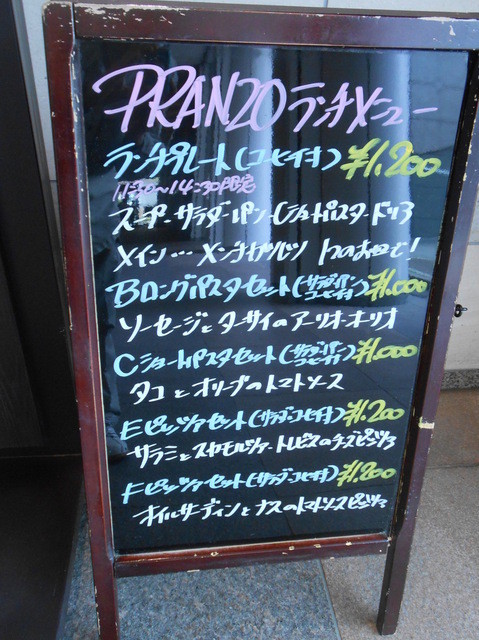 PRANZO ランチメニュー
ランチプレート(コーヒー付) ¥1,200
11:30〜14:30限定
スープ・サラダ・パン・ショートパスタ・ドリア
メイン…メンチカツ
Bロングパスタセット(サラダ・パン・コーヒー付) ¥1,000
ソーセージとターサイのアーリオ・オーリオ
Cショートパスタセット(サラダ・パン・コーヒー付) ¥1,000
タコとオリーブのトマトソース
Eピッツァセット(サラダ・コーヒー付) ¥1,200
サラミとスカモルツァ・トレビスのチーズピッツァ
Fピッツァセット(サラダ・コーヒー付) ¥1,200
オイルサーディンとナスのトマトソースピッツァ